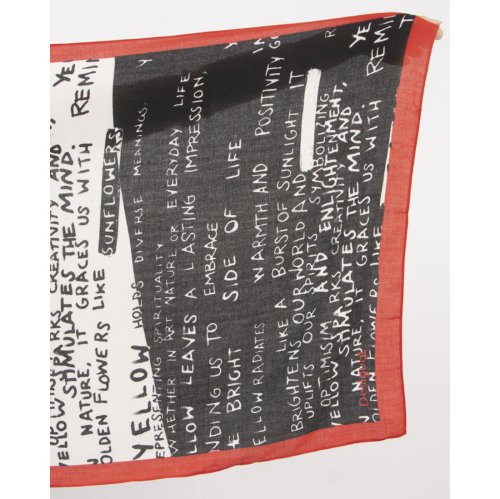 SUNFLOWERS
YELLOW HOLDS DIVERSE MEANINGS. Y
REPRESENTING SPIRITUALITY
WHETHER IN ART NATURE OR EVERYDAY LIFE
LLOW LEAVES A LASTING IMPRESSION,
NDING US TO EMBRACE
E BRIGHT SIDE OF LIFE
YELLOW RADIATES WARMTH AND POSITIVITY
LIKE A BURST OF SUNLIGHT IT
BRIGHTENS OUR WORLD AND
UPLIFTS OUR SYMBOLIZING
OPTIMISIM AND ENLIGHTENMENT,
YELLOW CREATIVITY AND
STIMULATES THE MIND.
NATURE, IT GRACES US WITH REMIN
OLDEN FLOWERS LIKE
CREATIVITY AND
YELLOW STIMULATES THE MIND.
NATURE, IT GRACES US WITH REMIN
OLDEN FLOWERS LIKE